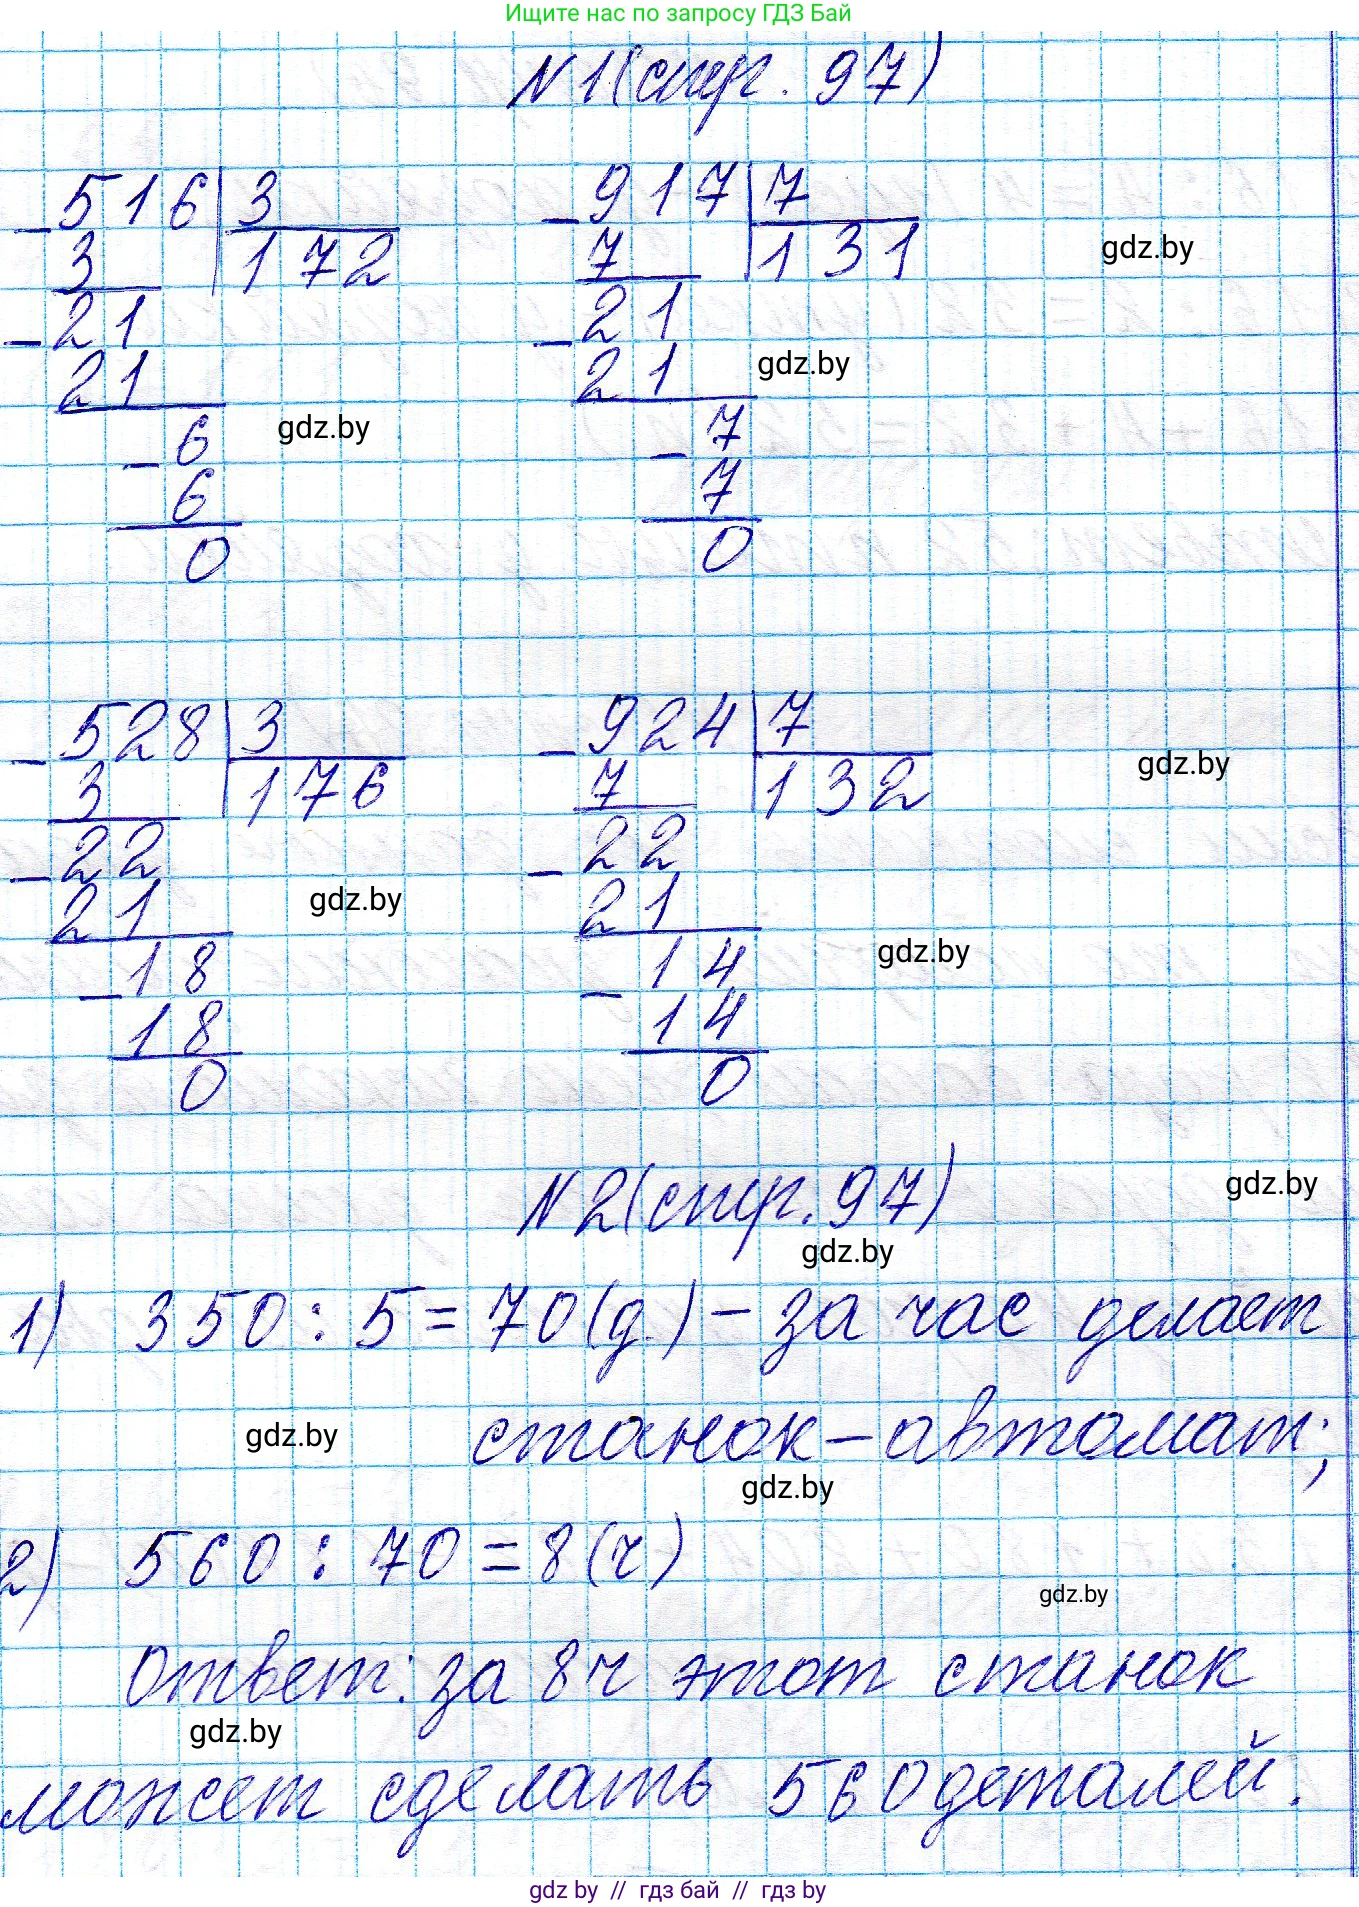 Ищите нас по запросу ГДЗ Бай
N1(стр. 97)
-516|3
3 172
-21
21
-6
6
0
-917|7
7 131
-21
21
-7
7
0
gdz.by
gdz.by
gdz.by
-528|3
3 176
-22
21
-18
18
0
-924|7
7 132
-22
21
-14
14
0
gdz.by
gdz.by
gdz.by
N2(стр. 97)
gdz.by
gdz.by
1) 350 : 5 = 70 (д.) - за час делает
станок-автомат;
gdz.by
gdz.by
2) 560 : 70 = 8 (ч)
gdz.by
Ответ: за 8 ч этот станок
gdz.by
может сделать 560 деталей.
gdz by // гдз бай // гдз by